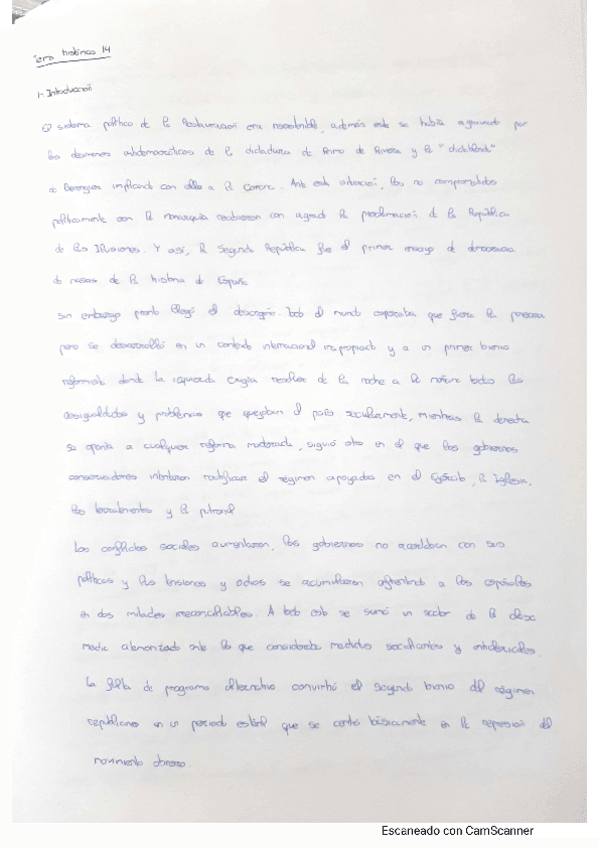 Tema histórico 14
1- Introducción
El sistema político de la Restauración era insostenible, además este se había agravado por
los desmanes antidemocráticos de la dictadura de Primo de Rivera y la "dictablanda"
de Berenguer implicando con ello a la Corona. Ante esta situación, los no comprometidos
políticamente con la monarquía recibieron con agrado la proclamación de la República
de las Ilusiones. Y así, la Segunda República fue el primer ensayo de democracia
de masas de la historia de España
Sin embargo pronto llegó el desengaño. Todo el mundo esperaba que fuera la panacea
pero se desarrolló en un contexto internacional inapropiado y a un primer bienio
reformista donde la izquierda exigía resolver de la noche a la mañana todas las
desigualdades y problemas que aquejaban el país secularmente, mientras la derecha
se oponía a cualquier reforma moderada, siguió otro en el que los gobiernos
conservadores intentaron rectificar el régimen apoyados en el Ejército, la Iglesia,
los terratenientes y la patronal
Los conflictos sociales aumentaron, los gobiernos no acertaban con sus
políticas y las tensiones y odios se acumularon enfrentando a los españoles
en dos mitades irreconciliables. A todo esto se sumó un sector de la clase
media atemorizado ante lo que consideraba medidas secularizantes y anticlericales.
La falta de programa alternativo convirtió el segundo bienio del régimen
republicano en un periodo estéril que se centró básicamente en la represión del
movimiento obrero.
Escaneado con CamScanner